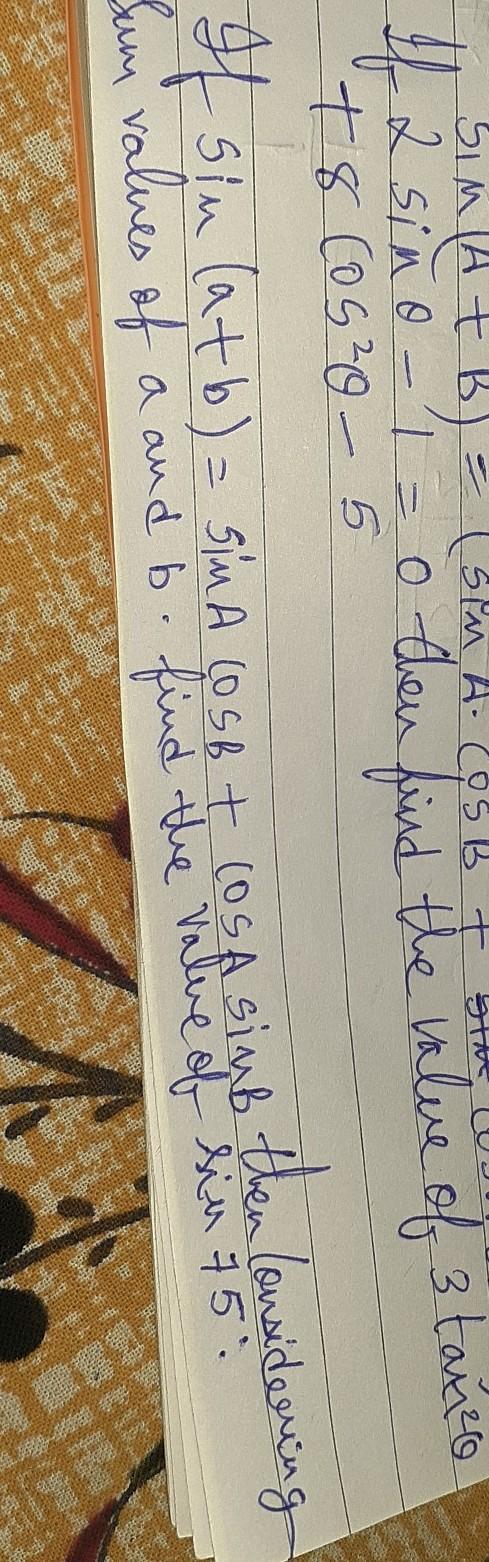 sin(A + B) = (sin A. Cos B +
If 2 sin θ - 1 = 0 then find the value of 3 tan²θ
+ 8 Cos²θ - 5
If sin (a+b) = sin A Cos B + Cos A sin B then Considering
values of a and b. find the value of sin 75°.